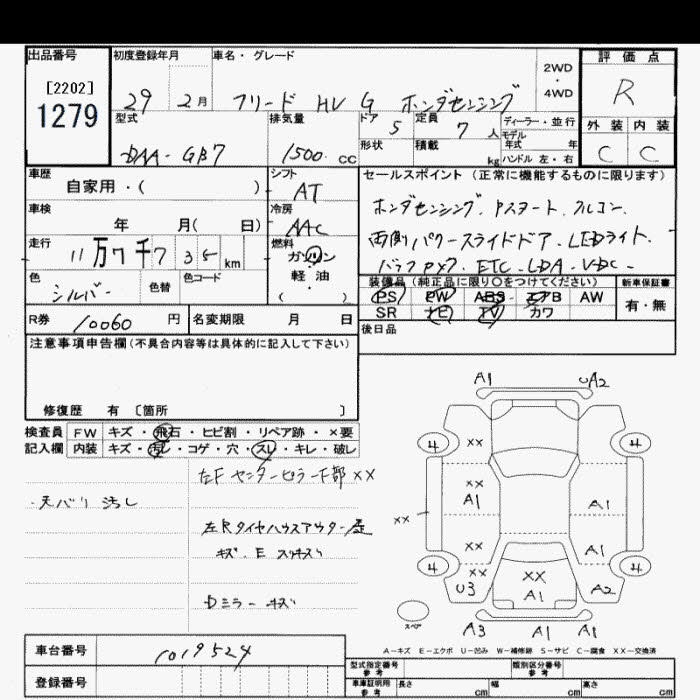 出品番号
[2202]
1279
初度登録年月
29 2月
車名・グレード
フリード HV G ホンダセンシング
2WD
・
4WD
評価点
R
外装 内装
C C
型式
DAA-GB7
排気量
1500 cc
ドア
5
定員
7 人
ディーラー・並行
モデル
年式 年
形状
積載
kg
ハンドル 左・右
車歴
自家用・( )
シフト
AT
車検
年 月( 日)
冷房
AAC
走行
11万7千7 35 km
燃料
ガソリン
軽・油
( )
色
シルバー
色替
色コード
セールスポイント (正常に機能するものに限ります)
ホンダセンシング. Pスタート. フルコン.
両側パワースライドドア. LEDライト.
ETC - LDA - VDC -
装備品 (純正品に限り○をつけてください)
PS PW ABS エアB AW
SR ナビ TV カワ
新車保証書
有・無
後日品
R券 10060 円
名変期限 月 日
注意事項申告欄 (不具合内容等は具体的に記入して下さい)
修復歴 有 〔箇所 〕
検査員 FW キズ・飛石・ヒビ割・リペア跡・×要
記入欄 内装 キズ・汚レ・コゲ・穴・スレ・キレ・破レ
左F センターピラー下部 XX
天バリ 汚し
左Rタイヤハウスアウター
キズ. E
Dミラーキズ
A1 UA2
4 XX 4
XX
A1 A1
XX
XX A1
4 XX 4
U3 XX A1 A2
スペア
A3 A1 A1
A-キズ E-エクボ U-凹み W-補修跡 S-サビ C-腐食 XX-交換済
車台番号
1019524
登録番号
型式指定番号
参考
類別区分番号
参考
車庫証明用
参考
長さ cm
幅 cm
高さ cm